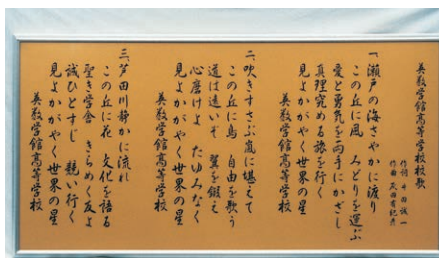 英数学館高等学校校歌
作詞 半田誠一
作曲 天田有紀彦
一、瀬戸の海さやかに渡り
この丘に風 みどりを運ぶ
愛と勇気を両手にかざし
真理究める旅を行く
見よかがやく世界の星
英数学館高等学校
二、吹きすさぶ嵐に堪えて
この丘に鳥 自由を歌う
道は遠いぞ 翼を鍛え
心磨けよ たゆみなく
見よかがやく世界の星
英数学館高等学校
三、芦田川静かに流れ
この丘に花 文化を語る
聖き学舎 きらめく友よ
誠ひとすじ 競い行く
見よかがやく世界の星
英数学館高等学校